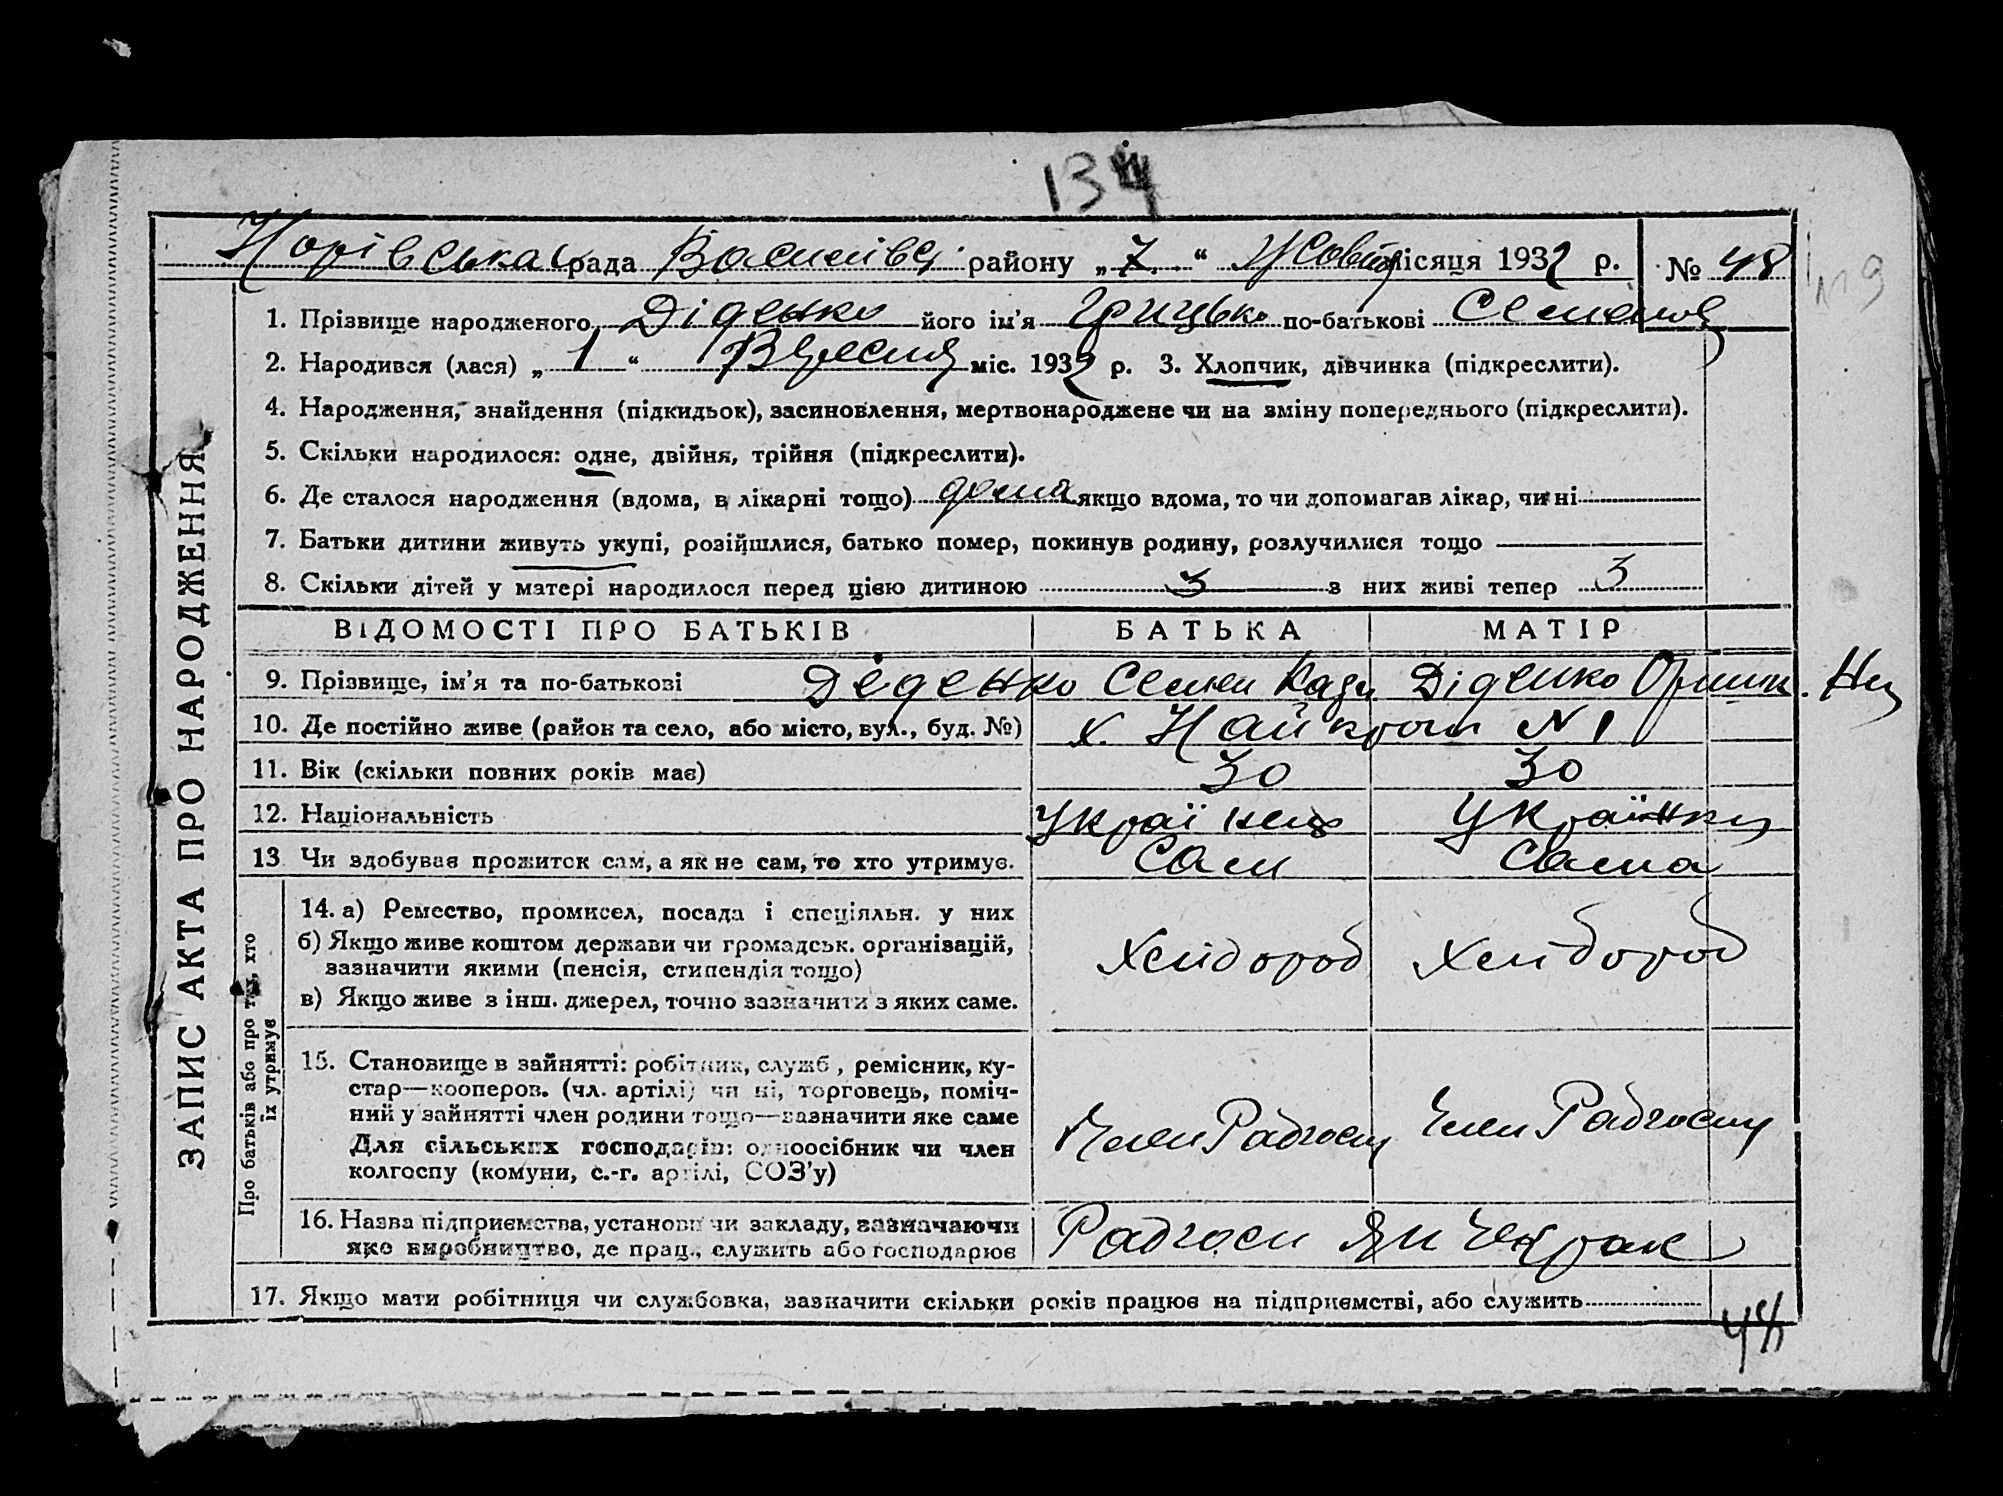 134
рада району „ 7. “ Жовтня місяця 1932 р. № 48
1. Прізвище народженого Діденко його ім'я Грицько по-батькові Семенов
2. Народився (лася) „ 1 “ Вересня міс. 1932 р. 3. Хлопчик, дівчинка (підкреслити).
4. Народження, знайдення (підкидьок), засиновлення, мертвонароджене чи на зміну попереднього (підкреслити).
5. Скільки народилося: одне, двійня, трійня (підкреслити).
6. Де сталося народження (вдома, в лікарні тощо) дома якщо вдома, то чи допомагав лікар, чи ні
7. Батьки дитини живуть укупі, розійшлися, батько помер, покинув родину, розлучилися тощо
8. Скільки дітей у матері народилося перед цією дитиною 3 з них живі тепер 3
ВІДОМОСТІ ПРО БАТЬКІВ БАТЬКА МАТІР
9. Прізвище, ім'я та по-батькові Діденко Семен Діденко
10. Де постійно живе (район та село, або місто, вул., буд. №) х. № 1
11. Вік (скільки повних років має) 30 30
12. Національність Українець Українка
13 Чи здобуває прожиток сам, а як не сам, то хто утримує. Сам Сама
ЗАПИС АКТА ПРО НАРОДЖЕННЯ
Про батьків або про тих, хто
їх утримує
14. а) Ремество, промисел, посада і спеціяльн. у них
б) Якщо живе коштом держави чи громадськ. організацій,
зазначити якими (пенсія, стипендія тощо)
в) Якщо живе з інш. джерел, точно зазначити з яких саме.
Хлібороб Хлібороб
15. Становище в зайнятті: робітник, служб, ремісник, ку-
стар—кооперов. (чл. артілі) чи ні, торговець, поміч-
ний у зайнятті член родини тощо—зазначити яке саме
Для сільських господарів: одноосібник чи член
колгоспу (комуни, с.-г. артілі, СОЗ'у)
Член Радгоспу Член Радгоспу
16. Назва підприємства, установи чи закладу, зазначаючи
яке виробництво, де прац., служить або господарює
Радгосп Янчекрак
17. Якщо мати робітниця чи службовка, зазначити скільки років працює на підприємстві, або служить